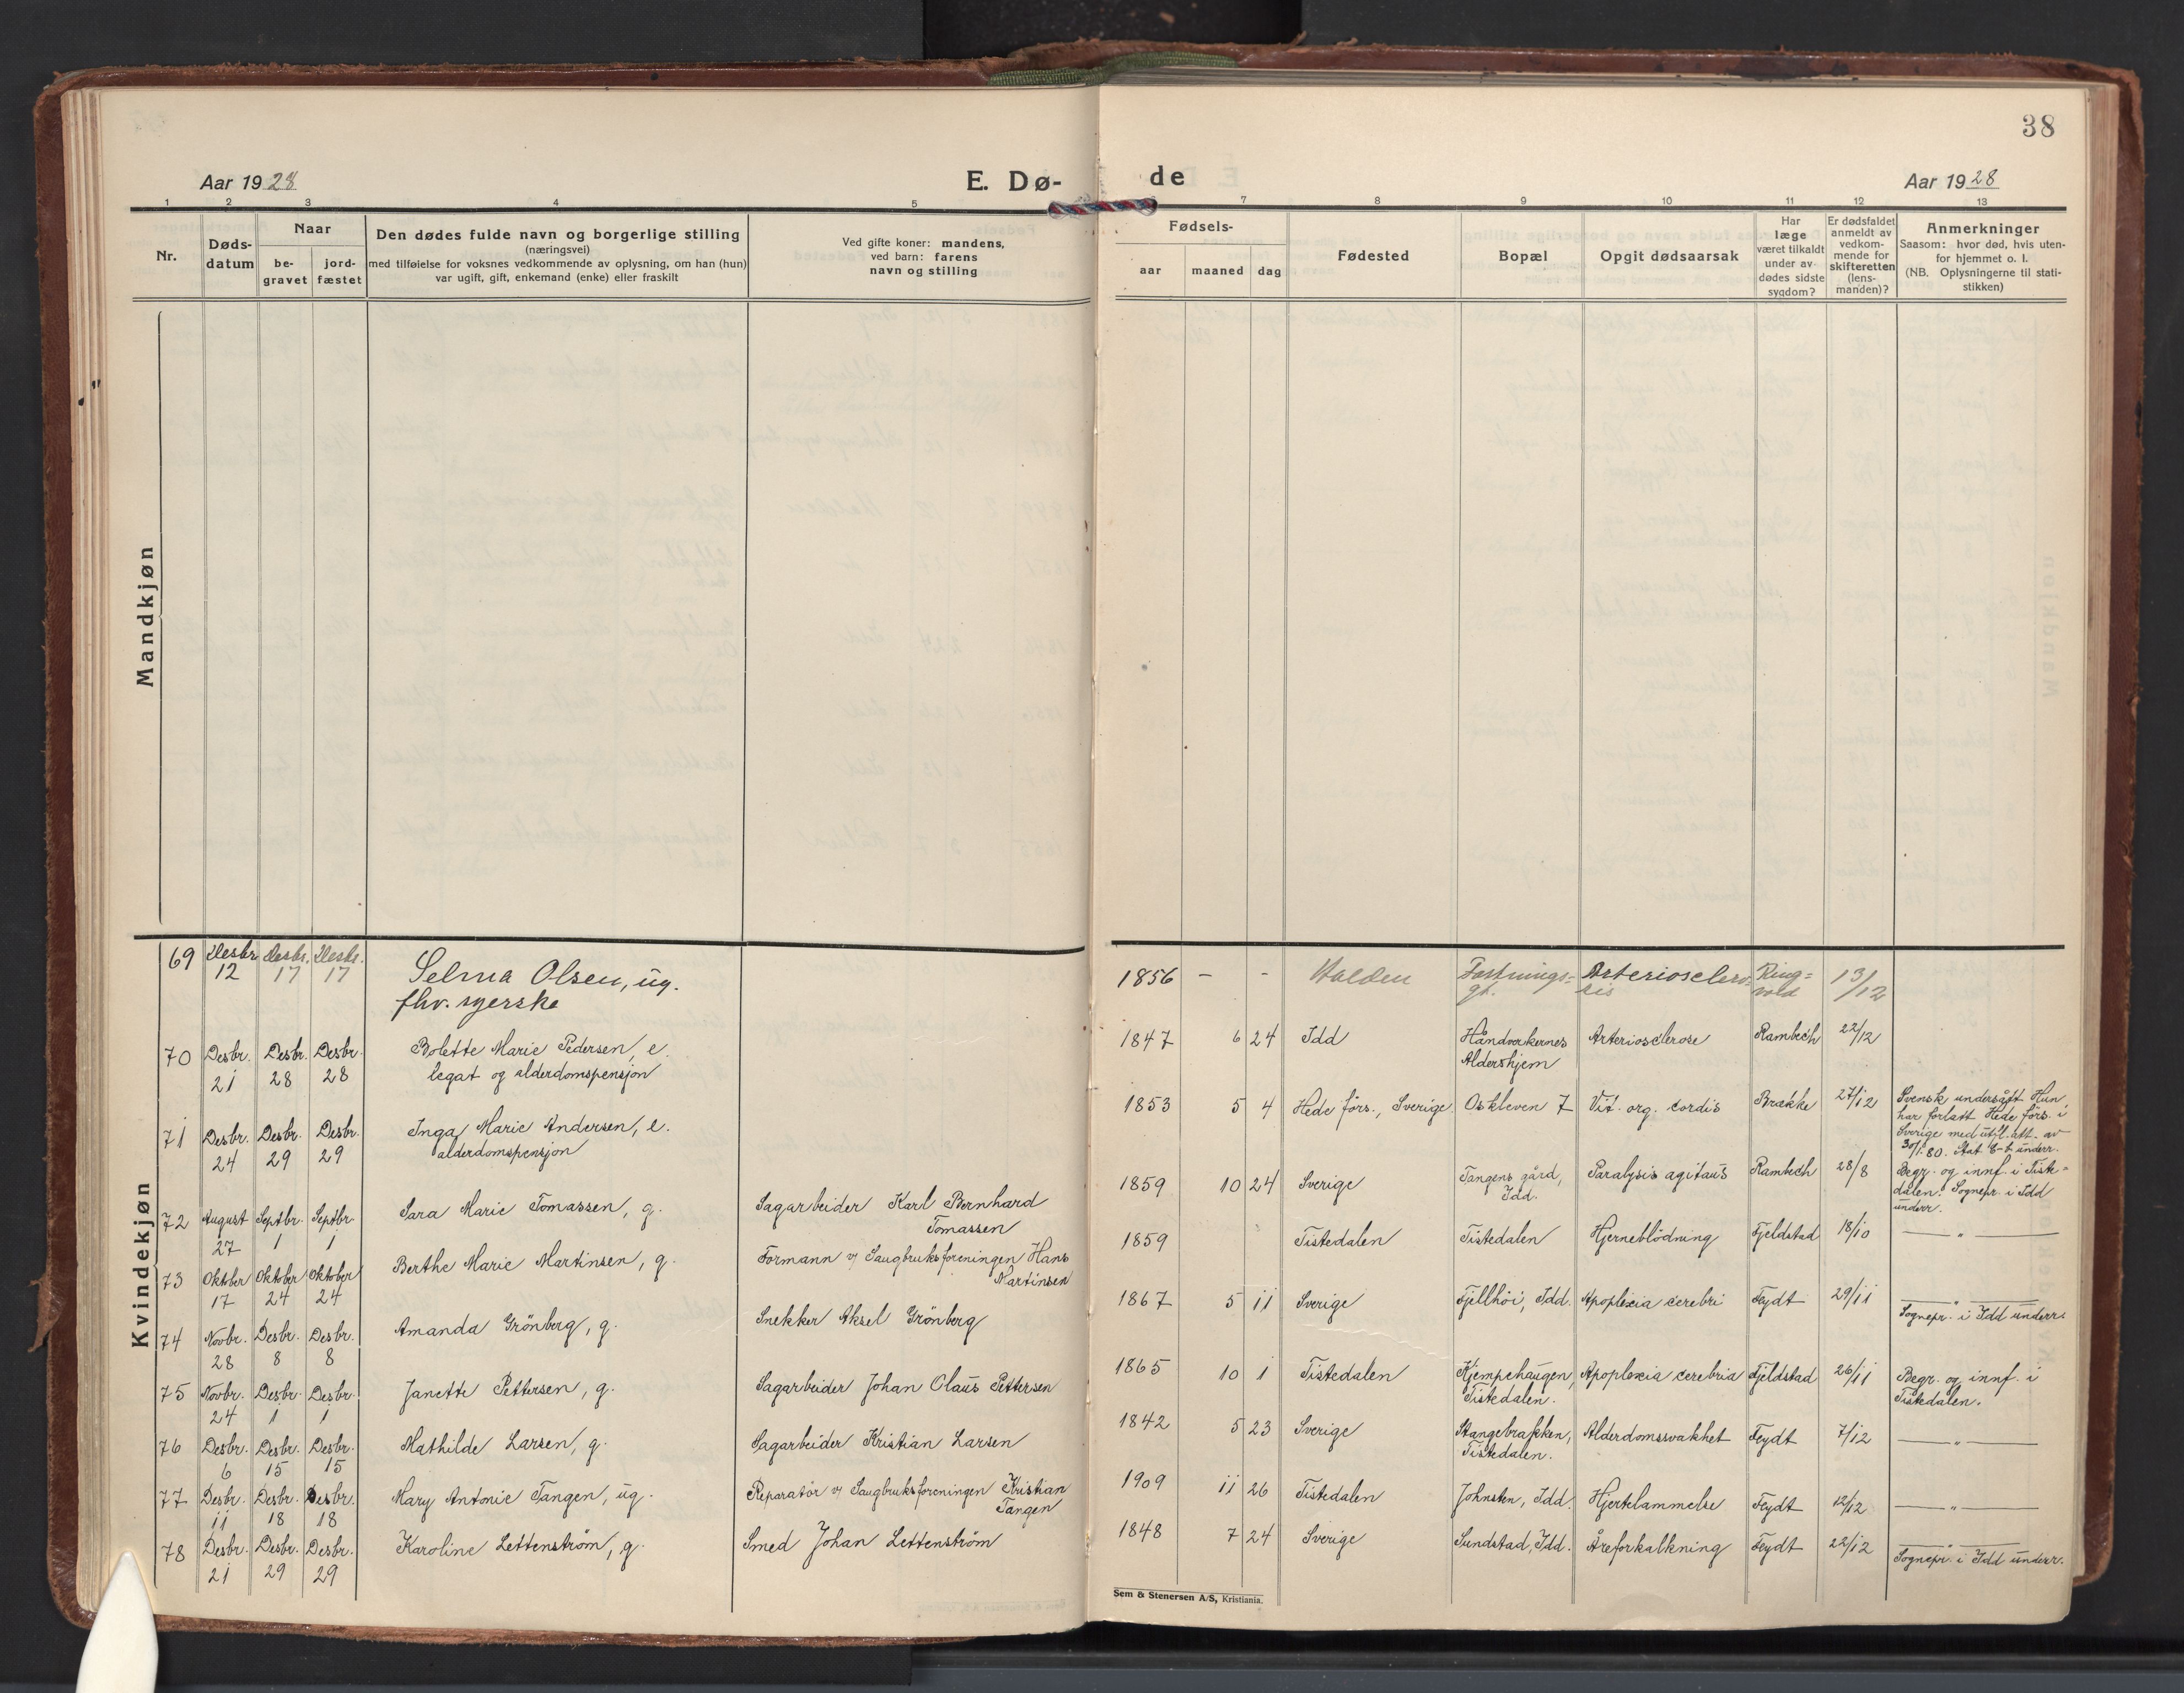 38
Aar 1928
E. Dø-
de
Aar 1928
1 2 3 4 5 7 8 9 10 11 12 13
Nr.
Døds-
datum
Naar
be-
gravet
jord-
fæstet
Den dødes fulde navn og borgerlige stilling
(næringsvei)
med tilføielse for voksnes vedkommende av oplysning, om han (hun)
var ugift, gift, enkemand (enke) eller fraskilt
Ved gifte koner: mandens,
ved barn: farens
navn og stilling
Fødsels-
aar maaned dag
Fødested
Bopæl
Opgit dødsaarsak
Har
læge
været tilkaldt
under av-
dødes sidste
sygdom?
Er dødsfaldet
anmeldt av
vedkom-
mende for
skifteretten
(lens-
manden)?
Anmerkninger
Saasom: hvor død, hvis uten-
for hjemmet o. l.
(NB. Oplysningerne til stati-
stikken)
Mandkjøn
Kvindekjøn
69 Desbr. Desbr. Desbr. Selma Olsen, ug. 1856 - - Halden Festnings= Arterioscləro= Ring= 13/12
12 17 17 fhv. syerske gt. sis vold
70 Desbr. Desbr. Desbr. Bolette Marie Pedersen, e. 1847 6 24 Idd Håndverkernes Arteriosclerose Rambech 22/12
21 28 28 legat og alderdomspensjon Aldershjem
71 Desbr. Desbr. Desbr. Inga Marie Andersen, e. 1853 5 4 Hede förs., Sverige. Oskleven 7 Vit. org. cordis Brække 27/12 Svensk undersått. Hun
24 29 29 alderdomspensjon har forlatt Hede förs. i
Sverige med utfl. att. av
30/1. 80. Stat 8-b underr.
72 August Septbr. Septbr. Sara Marie Tomassen, g. Sagarbeider Karl Bernhard 1859 10 24 Sverige Tangens gård, Paralysis agitans Rambech 28/8 Begr. og innf. i Tiste=
27 1 1 Tomassen Idd. dalen. Sognepr. i Idd
underr.
73 Oktober Oktober Oktober Berthe Marie Martinsen, g. Formann v/ Saugbruksforeningen Hans 1859 Tistedalen Tistedalen Hjerneblödning Fjeldstad 18/10 — " —
17 24 24 Martinsen
74 Novbr. Desbr. Desbr. Amanda Grönberg, g. Snekker Aksel Grönberg 1867 5 11 Sverige Fjellhöi, Idd. Apoplexia cerebri Feydt 29/11 — " —
28 8 8 Sognepr. i Idd underr.
75 Novbr. Desbr. Desbr. Janette Pettersen, g. Sagarbeider Johan Olaus Pettersen 1865 10 1 Tistedalen Kjempehaugen, Apoplexia cerebria Fjeldstad 26/11 Begr. og innf. i
24 1 1 Tistedalen. Tistedalen.
76 Desbr. Desbr. Desbr. Mathilde Larsen, g. Sagarbeider Kristian Larsen 1842 5 23 Sverige Stangebrakken, Alderdomssvakhet Feydt 7/12 — " —
6 15 15 Tistedalen.
77 Desbr. Desbr. Desbr. Mary Antonie Tangen, ug. Reparatör v/ Saugbruksforeningen Kristian 1909 11 26 Tistedalen Johnsten, Idd. Hjertelammelse Feydt 12/12 — " —
11 18 18 Tangen
78 Desbr. Desbr. Desbr. Karoline Lettenström, g. Smed Johan Lettenström 1848 7 24 Sverige Sundstad, Idd. Åreforkalkning Feydt 22/12 — " —
21 29 29 Sognepr. i Idd underr.
Sem & Stenersen A/S, Kristiania.